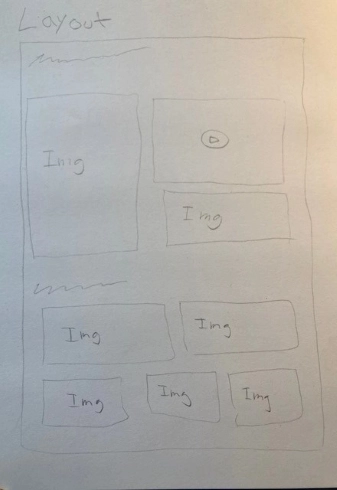 Layout
Img
Img
Img
Img
Img
Img
Img